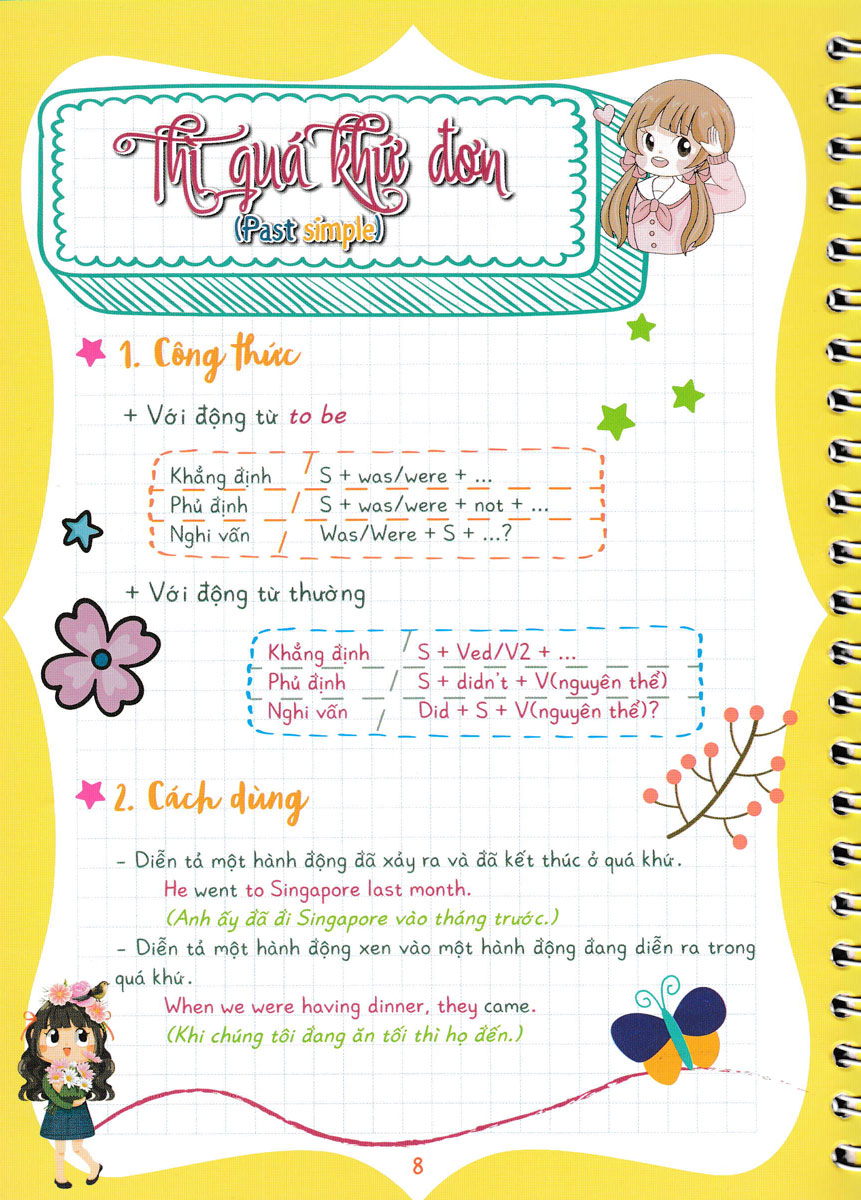 Thì quá khứ đơn
(Past simple)
1. Công thức
+ Với động từ to be
Khẳng định / S + was/were + ...
Phủ định / S + was/were + not + ...
Nghi vấn / Was/Were + S + ...?
+ Với động từ thường
Khẳng định / S + Ved/V2 + ...
Phủ định / S + didn't + V(nguyên thể)
Nghi vấn / Did + S + V(nguyên thể)?
2. Cách dùng
– Diễn tả một hành động đã xảy ra và đã kết thúc ở quá khứ.
He went to Singapore last month.
(Anh ấy đã đi Singapore vào tháng trước.)
– Diễn tả một hành động xen vào một hành động đang diễn ra trong
quá khứ.
When we were having dinner, they came.
(Khi chúng tôi đang ăn tối thì họ đến.)
8